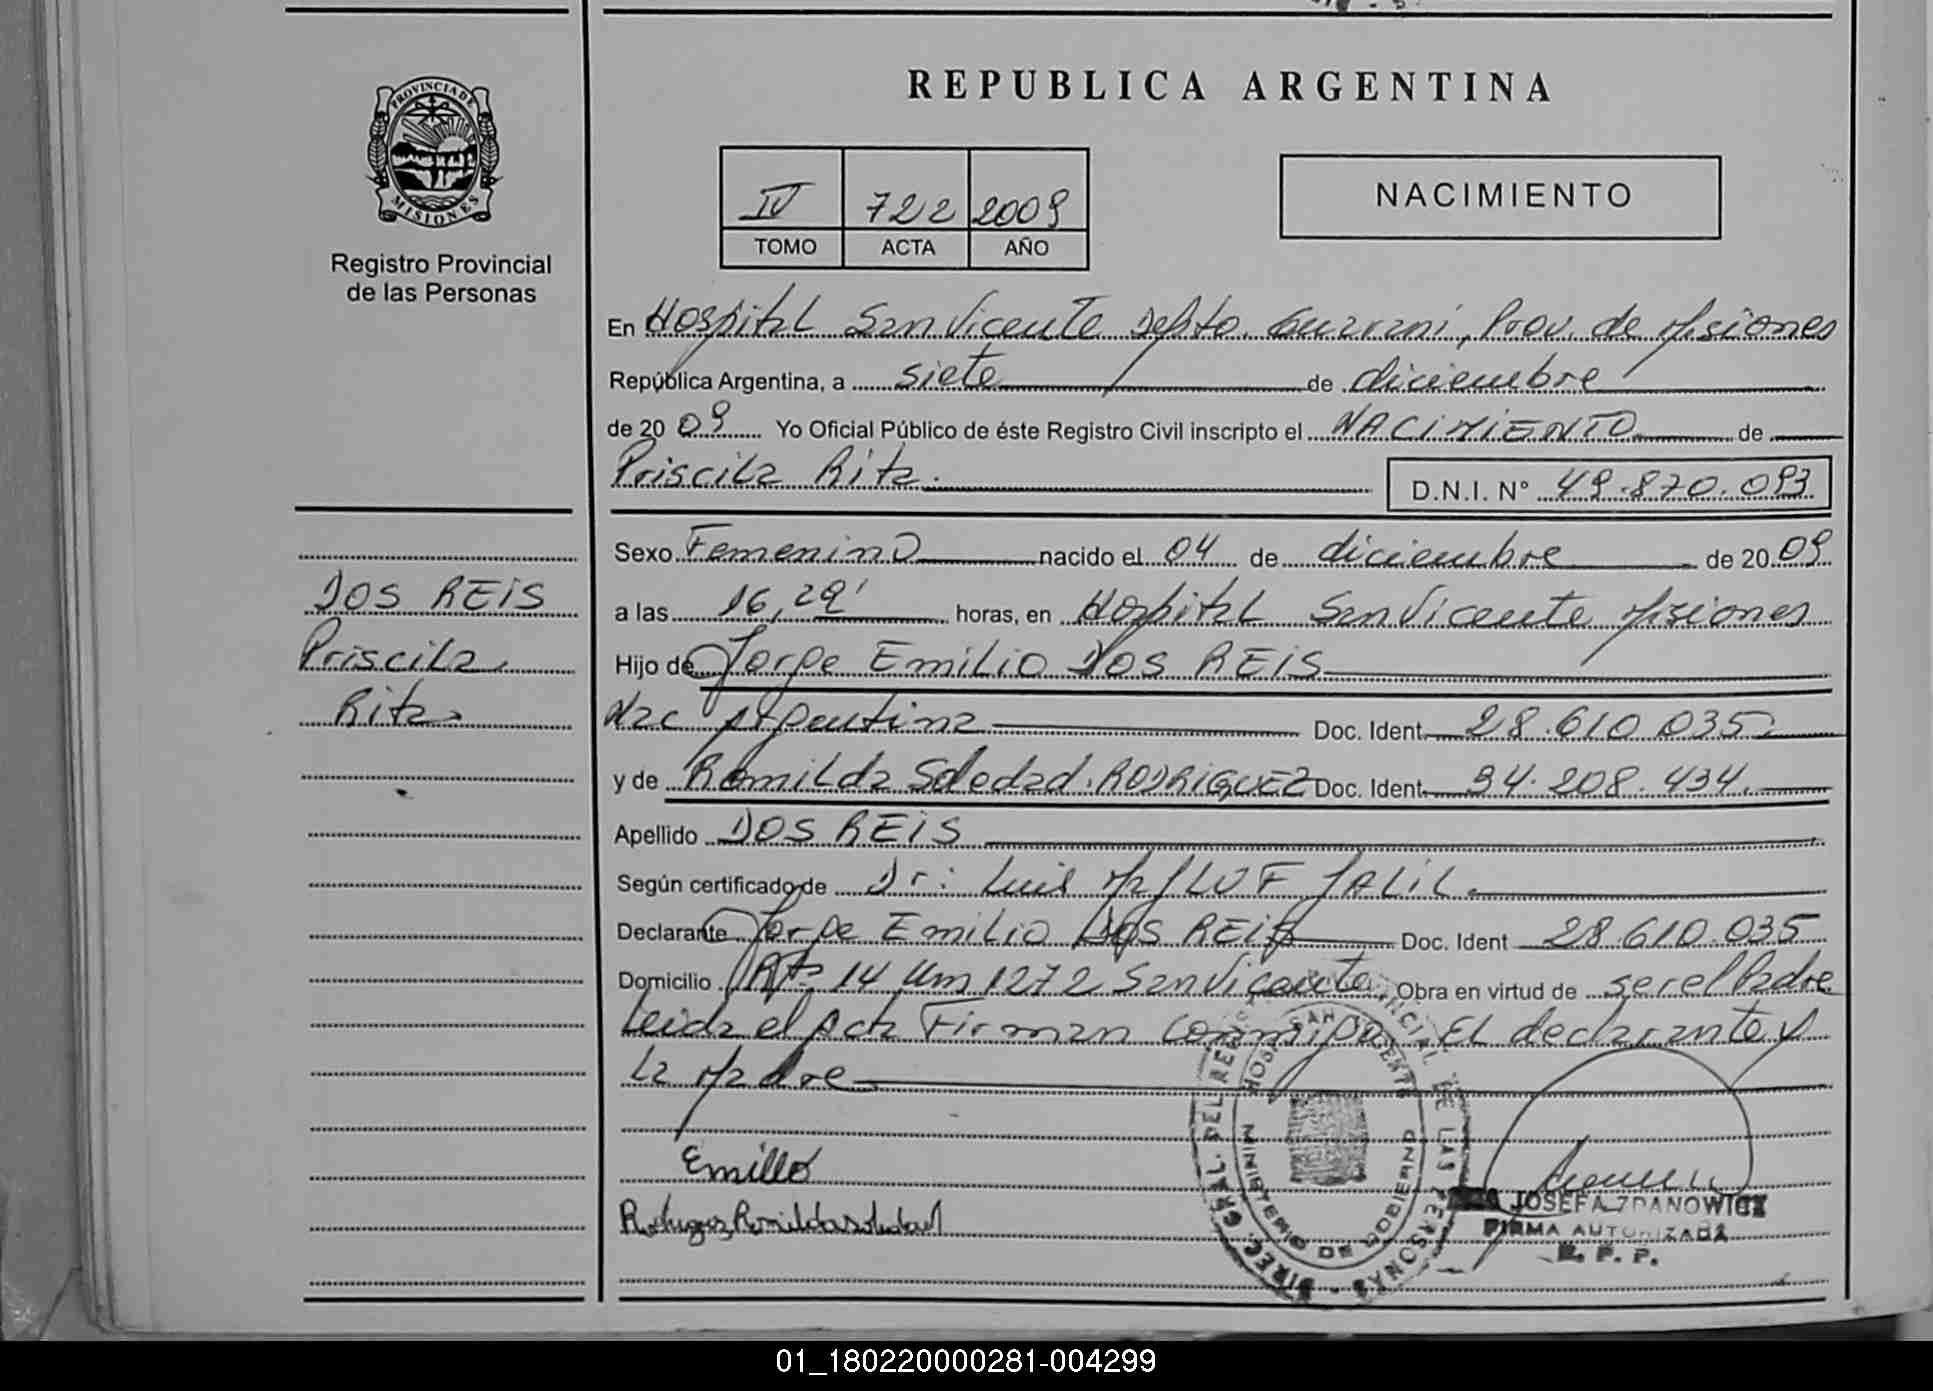 REPUBLICA ARGENTINA
PROVINCIA DE
MISIONES
Registro Provincial
de las Personas
IV 722 2009
TOMO ACTA AÑO
NACIMIENTO
En Hospital San Vicente Depto. Guarani, Prov. de Misiones
República Argentina, a siete de diciembre
de 2009 Yo Oficial Público de éste Registro Civil inscripto el NACIMIENTO de
Priscila Rita. D.N.I. N° 49.870.093
DOS REIS
Priscila
Rita
Sexo Femenino nacido el 04 de diciembre de 2009
a las 16,29' horas, en Hospital San Vicente Misiones
Hijo de Jorge Emilio DOS REIS
Nac Argentina Doc. Ident. 28.610.035
y de Romilda Soledad RODRIGUEZ Doc. Ident. 34.208.434
Apellido DOS REIS
Según certificado de Dr: Luis MaLUF JALIL
Declarante Jorge Emilio DOS REIS Doc. Ident 28.610.035
Domicilio Rta 14 Km 1272 San Vicente. Obra en virtud de ser el Padre
Leida el Acta Firman conmigo El declarante y
La Madre
Emilio
Rodriguez Romilda Soledad
DIREC. GRAL. DEL REG. PROVINCIAL DE LAS PERSONAS
HOSP. SAN VICENTE
MINISTERIO DE GOBIERNO
JOSEFA ZDANOWICZ
FIRMA AUTORIZADA
R. P. P.
01_180220000281-004299